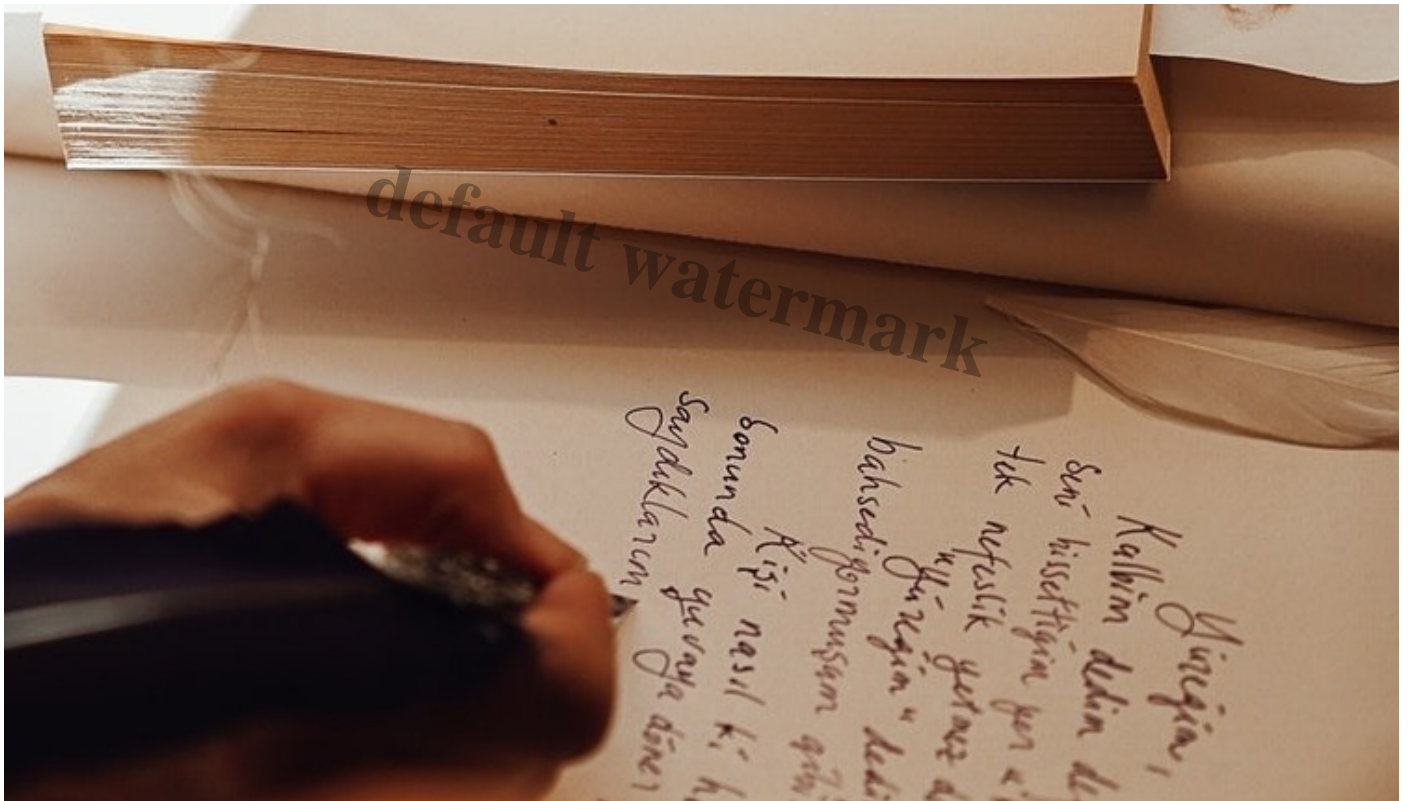 default watermark
Yüreğim,
Kalbim dedim
seni hissettiğim yer
tek nefeslik yetmez
"Yüreğim" dedi
bahsediyormuşum gibi
Kişi nasıl ki
sonunda yuvaya döner
saydıklarım